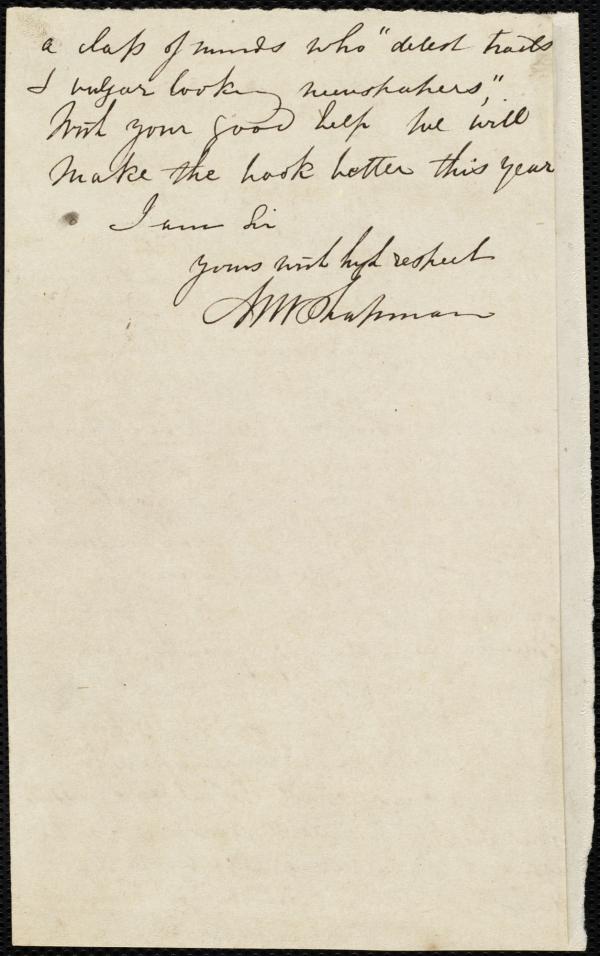 a class of minds who "detest tracts
& vulgar looking newspapers,"
With your good help we will
make the book better this year
I am Sir
yours with high respect
M W Chapman